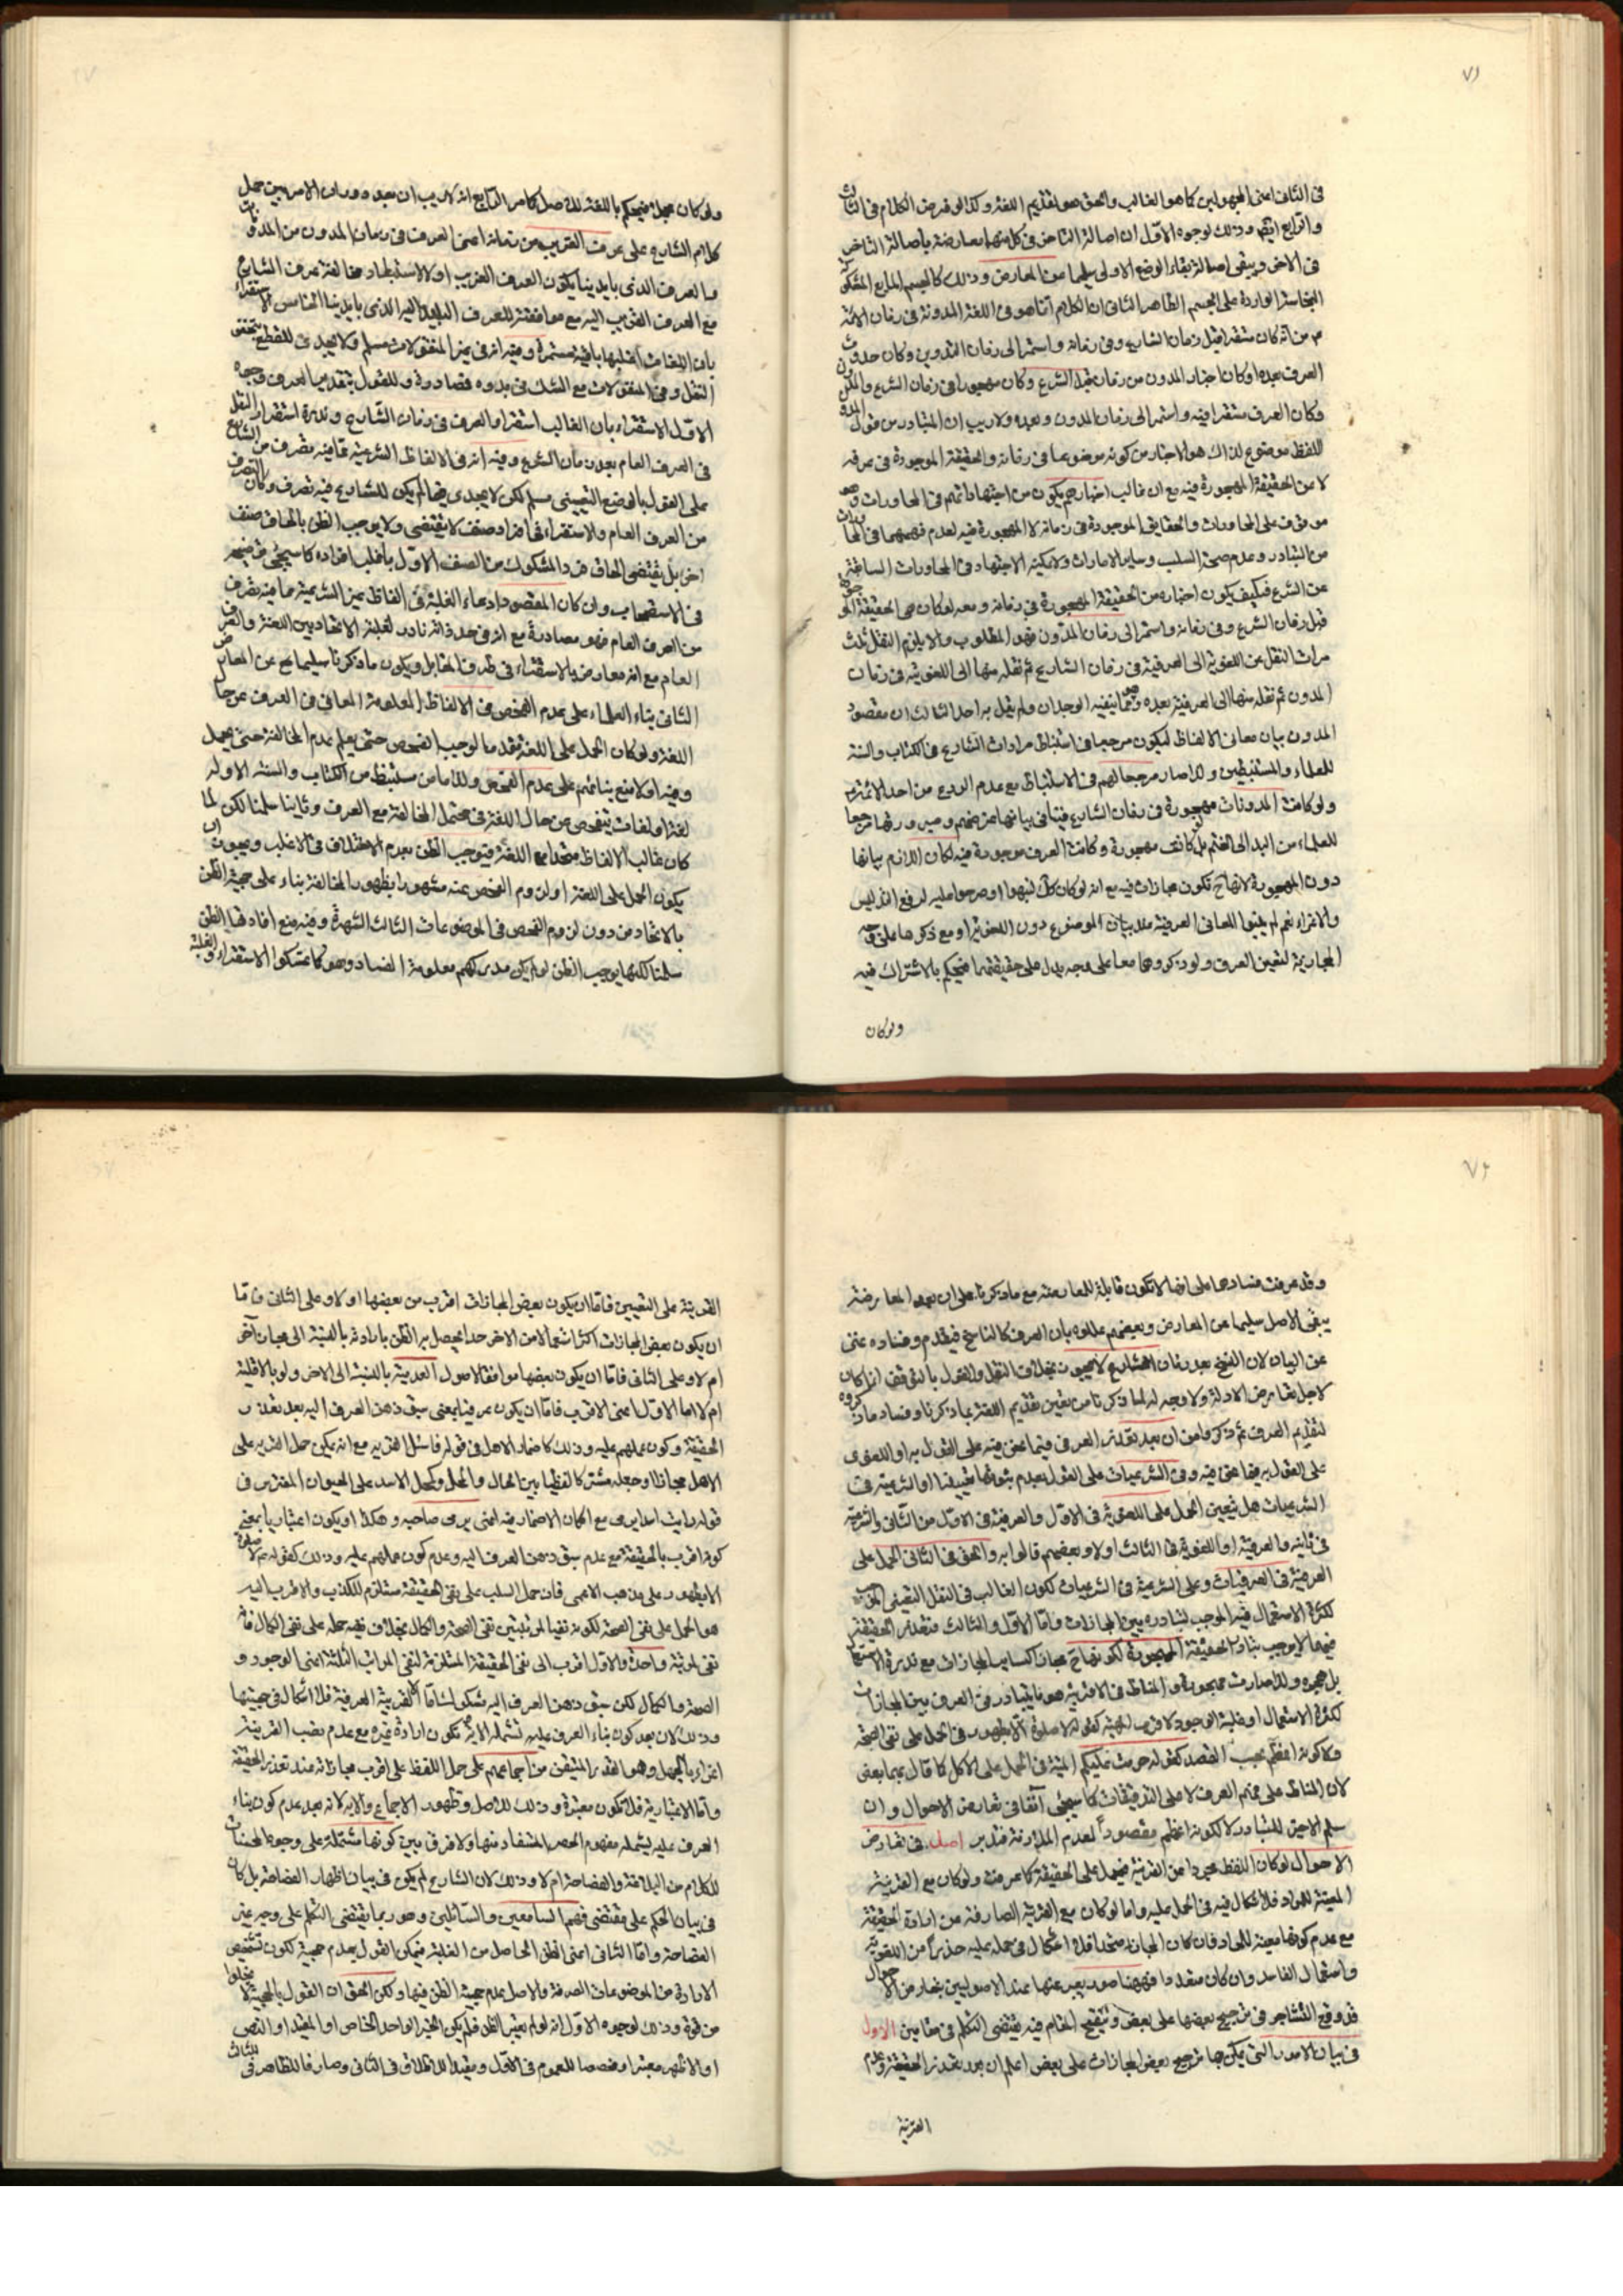 ٧١
فى الثانى اعنى المجهولين كما هو الغالب والحق هو تقديم اللغة وكذا لو فرض الكلام فى الثالث
والرابع ايضا وذلك لوجوه الاول ان اصالة التاخر فى كل منهما معارضة باصالة التاخر
فى الاخر ويبقى اصالة بقاء الوضع الاولى سليما عن المعارض وذلك كالجسم المايع المشكوك
النجاسة الواردة على الجسم الطاهر الثانى ان الكلام انما هو فى اللغة المدونة فى زمان الائمة
م من انه كان مستقرا قبل زمان الشارع وفى زمانه واستمر الى زمان التدوين وكان حدوث
العرف بعده او كان اخبار المدون من زمان قبل الشرع وكان مهجورا فى زمان الشرع والمدون
وكان العرف مستقرا فيه واستمر الى زمان المدون وبعده ولا ريب ان المتبادر من قول المدون
اللفظ موضوع لذاك هو الاخبار من كونه موضوعا فى زمانه والحقيقة الموجودة فى عرفه
لا عن الحقيقة المهجورة فيه مع ان غالب اخبارهم يكون من اجتهاداتهم فى المحاورات وهو
موقوف على المحاورات والحقايق الموجودة فى زمانه لا المهجورة فيه لعدم فهمهما فى المحاورات
من التبادر وعدم صحة السلب وساير الامارات ولا يمكنه الاجتهاد فى المحاورات السابقة
عن الشرع فكيف يكون اخباره من الحقيقة المهجورة فى زمانه ومعه لو كان هى الحقيقة الموجودة
قبل زمان الشرع وفى زمانه واستمر الى زمان المدون فهو المطلوب والا يلزم النقل ثلث
مرات النقل من اللغوية الى العرفية فى زمان الشارع ثم نقله منها الى اللغوية فى زمان
المدون ثم نقله منها الى العرفية بعده وهو مما ينفيه الوجدان ولم يقل به احد الثالث ان مقصود
المدون بيان معانى الالفاظ ليكون مرجعا فى استنباط مرادات الشارع من الكتاب والسنة
للعلماء والمستنبطين ولذا صار مرجعا لهم فى الاستنباط مع عدم الردع من احد الائمة
ولو كانت المدونات مهجورة فى زمان الشارع
للعلماء من البدو الى الختم بل كانت مهجورة وكانت العرف موجودة فيه لكان اللازم بيانها
دون المهجورة لانها ح تكون مجازات فيه مع انه لو كان كك لنبهوا او صرحوا عليه لدفع التدليس
والاغراء نعم لم يثبتوا المعانى العرفية
المجازية لتعين العرف ولو ذكروهما معا على وجه يدل على حقيقتهما فنحكم بالاشتراك فيه
ولو كان
ولو كان مجملا فنحكم باللغة للاصل كما مر الرابع انه لا ريب ان بعد دوران الامر بين حمل
كلام الشارع على عرف القريب من زمانه اعنى العرف فى زمان المدون من المدونات
والعرف الذى بايدينا يكون العرف القريب اولا
مع العرف القريب اليه مع موافقته للعرف البعيد اليه الذى بايدينا الخامس الاستقراء
بان اللغات اغلبها باقية مستمرة وفيه انه فى غير المنقولات مسلم ولا يجدى للقطع بتحقق
النقل وفى المنقولات مع الشك فى بدوه مصادرة وللقول بتقديم العرف وجوه
الاول الاستقراء بان الغالب استقرار العرف فى زمان الشارع وندرة استقرار النقل
فى العرف العام بعد زمان الشرع وفيه انه فى الالفاظ الشرعية مما فيه تصرف من الشارع
على القول بالوضع التعيينى مسلم لكن لا يجدى فيما لم يكن للشارع فيه تصرف وكان التصرف
من العرف العام والاستقراء فى افراد صنف لا يقتضى ولا يوجب الظن بالحاق صنف
اخر بل يقتضى الحاق فرد المشكوك من الصنف الاول باغلب افراده كما سيجئ توضيحه
فى الاستصحاب وان كان المقصود ادعاء الغلبة فى الفاظ غير الشرعية مما فيه تصرف
من العرف العام فهو مصادرة مع انه فى حد ذاته نادر لغلبة الاتحاد بين اللغة والعرف
العام مع انه معارض بالاستقراء فى طرف المقابل ويكون ما ذكرنا سليما ح عن المعارض
الثانى بناء العلماء على عدم الفحص فى الالفاظ المعلومة المعانى فى العرف عن حال
اللغة ولو كان الحمل على اللغة مقدما لوجب الفحص حتى يعلم عدم المخالفة حتى يحمل
وفيه اولا منع بنائهم على عدم الفحص
لغة او لغات يتفحص من حال اللغة فى محتمل المخالفة مع العرف وثانيا سلمنا لكن لما
كان غالب الالفاظ متحدا مع اللغة فيوجب الظن بعدم الاختلاف فى الاغلب
يكون الحمل على اللغة او لزوم الفحص عنه مشهورا بظهور المخالفة بناء على حجية الظن
بالاتحاد من دون لزوم الفحص فى الموضوعات الثالث الشهرة وفيه منع افادتها الظن
سلمنا لكنها يوجب الظن لو لم يكن مدركهم معلومة الفساد وهو كما تمسكوا الاستقراء والغلبة
٧٢
وقد عرفت فسادها على انها لا تكون قابلة للمعارضة مع ما ذكرنا على ان بعد المعارضة
يبقى الاصل سليما عن المعارض وبعضهم عللوه بان العرف كالناسخ فيقدم وفساده غنى
عن البيان لان النسخ بعد زمان الشارع لا يجوز بخلاف النقل والقول بالتوقف ان كان
لاجل تعارض الادلة ولا وجه له لما ذكرنا من تعين تقديم اللغة بما ذكرنا وفساد ما ذكروه
لتقديم العرف ثم ذكر وا من ان بعد تعذر العرفى فيما نحن فيه على القول به او اللغوى
على القول به فيما نحن فيه وفى الشرعيات على القول بعدم ثبوتها
الشرعيات هل يتعين الحمل على اللغوية فى الاول والعرفية فى الاول من الثانى والشرعية
فى ثانيه والعرفية او اللغوية فى الثالث او لا وبعضهم قالوا به والحق فى الثانى الحمل على
العرفية فى العرفيات وعلى الشرعية فى الشرعيات لكون الغالب فى النقل التعينى
لكثرة الاستعمال فيه الموجب لتبادره بين المجازات واما الاول والثالث فتعذر الحقيقة
فيهما لا يوجب تبادر الحقيقة المهجورة لكونها ح مجاز كساير المجازات مع ندرة الاستعمال
بل هجره ولذا صارت مهجورة والمناط فى الاقربية هو ما يتبادر فى العرف بين المجازات
لكثرة الاستعمال او غلبة الوجود لا قرب الجهة كقوله لا صلوة الا بطهور فى الحمل على نفى الصحة
ولا كونه اعظم بحسب القصد كقوله حرمت عليكم الميتة فى الحمل على الاكل كما قال بهما بعض
لان المناط على فهم العرف لا على التدقيقات كما سيجئ آنفا فى تعارض الاحوال وان
سلم الاخير للتبادر لا لكونه اعظم مقصودا لعدم الملازمة فتدبر اصل فى تعارض
الاحوال لو كان اللفظ مجردا عن القرينة فيحمل على الحقيقة كما عرفت ولو كان مع القرينة
المعينة للمراد فلا اشكال فيه فى الحمل عليه واما لو كان مع القرينة الصارفة من ارادة الحقيقة
مع عدم كونها معينة للمراد فان كان المجاز متحدا فلا اشكال فى حمله عليه حذرا من اللغوية
واستعمال الفاسد وان كان متعددا فههنا صور يعبر عنها عند الاصوليين بتعارض الاحوال
قد وقع التشاجر فى ترجيح بعضها على بعض وتنقيح المقام فيه يقتضى التكلم فى مقامين الاول
فى بيان الامور التى يمكن بها ترجيح بعض المجازات على بعض اعلم ان بعد تعذر الحقيقة وعدم
القرينة
القرينة على التعيين فاما ان يكون بعض المجازات اقرب من بعضها او لا وعلى الثانى فاما
ان يكون بعض المجازات اكثر استعمالا من الاخر حدا يحصل به الظن بارادته بالنسبة الى مجاز آخر
ام لا وعلى الثانى فاما ان يكون بعضها موافقا لاصول العدمية بالنسبة الى الاخر ولو بالاقلية
ام لا اما الاول اعنى الاقرب فاما ان يكون عرفيا يعنى سبق ذهن العرف اليه بعد تعذر
الحقيقة وكون عملهم عليه وذلك كاضمار الاهل فى قوله فاسئل القرية مع انه يمكن حمل القرية على
الاهل مجازا او جعله مشتركا لفظيا بين الحال والمحل وكحمل الاسد على الحيوان المفترس فى
قوله رايت اسدا يرمى مع امكان الاضمار فيه اعنى يرمى صاحبه وهكذا او يكون اعتباريا بمعنى
كونه اقرب بالحقيقة مع عدم سبق ذهن العرف اليه وعدم كون عملهم عليه وذلك كقوله لا صلوة
الا بطهور على مذهب الاعمى فان حمل السلب على نفى الحقيقة مستلزم للكذب والاقرب اليه
هو الحمل على نفى الصحة لكونه نفيا لمرتبتين نفى الصحة والكمال بخلاف نفيه حمله على نفى الكمال فانه
نفى لمرتبة واحدة والاول اقرب الى نفى الحقيقة المستلزمة لنفى المراتب الثلثة اعنى الوجود و
الصحة والكمال لكن سبق ذهن العرف اليه مشكوك اما القريبة العرفية فلا اشكال فى حجيتها
وذلك لان بعد كون بناء العرف عليه تشمله الاية تكون ارادة غيره مع عدم نصب القرينة
اغراء بالجهل وهو القدر المتيقن من اجماعهم على حمل اللفظ على اقرب مجازاته عند تعذر الحقيقة
واما الاعتبارية فلا تكون معتبرة وذلك للاصل وظهور الاجماع والاية لانه بعد عدم كون بناء
العرف عليه يشمله مفهوم الحصر المستفاد منها ولا فرق بين كونها مشتملة على وجوه المحسنات
للكلام من البلاغة والفصاحة ام لا وذلك لان الشارع لم يكن فى بيان اظهار الفصاحة بل كان
فى بيان الحكم على مقتضى فهم السامعين والسائلين وهو ربما يقتضى التكلم على وجه غير
الفصاحة واما الثانى اعنى الظن الحاصل من الغلبة فيمكن القول بعدم حجية لكون تشخيص
الارادة من الموضوعات الصرفة والاصل عدم حجية الظن فيها ولكن الحق ان القول بالحجية لا يخلوا
من قوة وذلك لوجوه الاول انه لو لم يعتبر الظن فلم يكن الخبر الواحد الخاص او المقيد او النص
او الاظهر معتبرا ومخصصا للعموم فى الاول ومقيدا للاطلاق فى الثانى وصارفا للظاهر فى الثالث